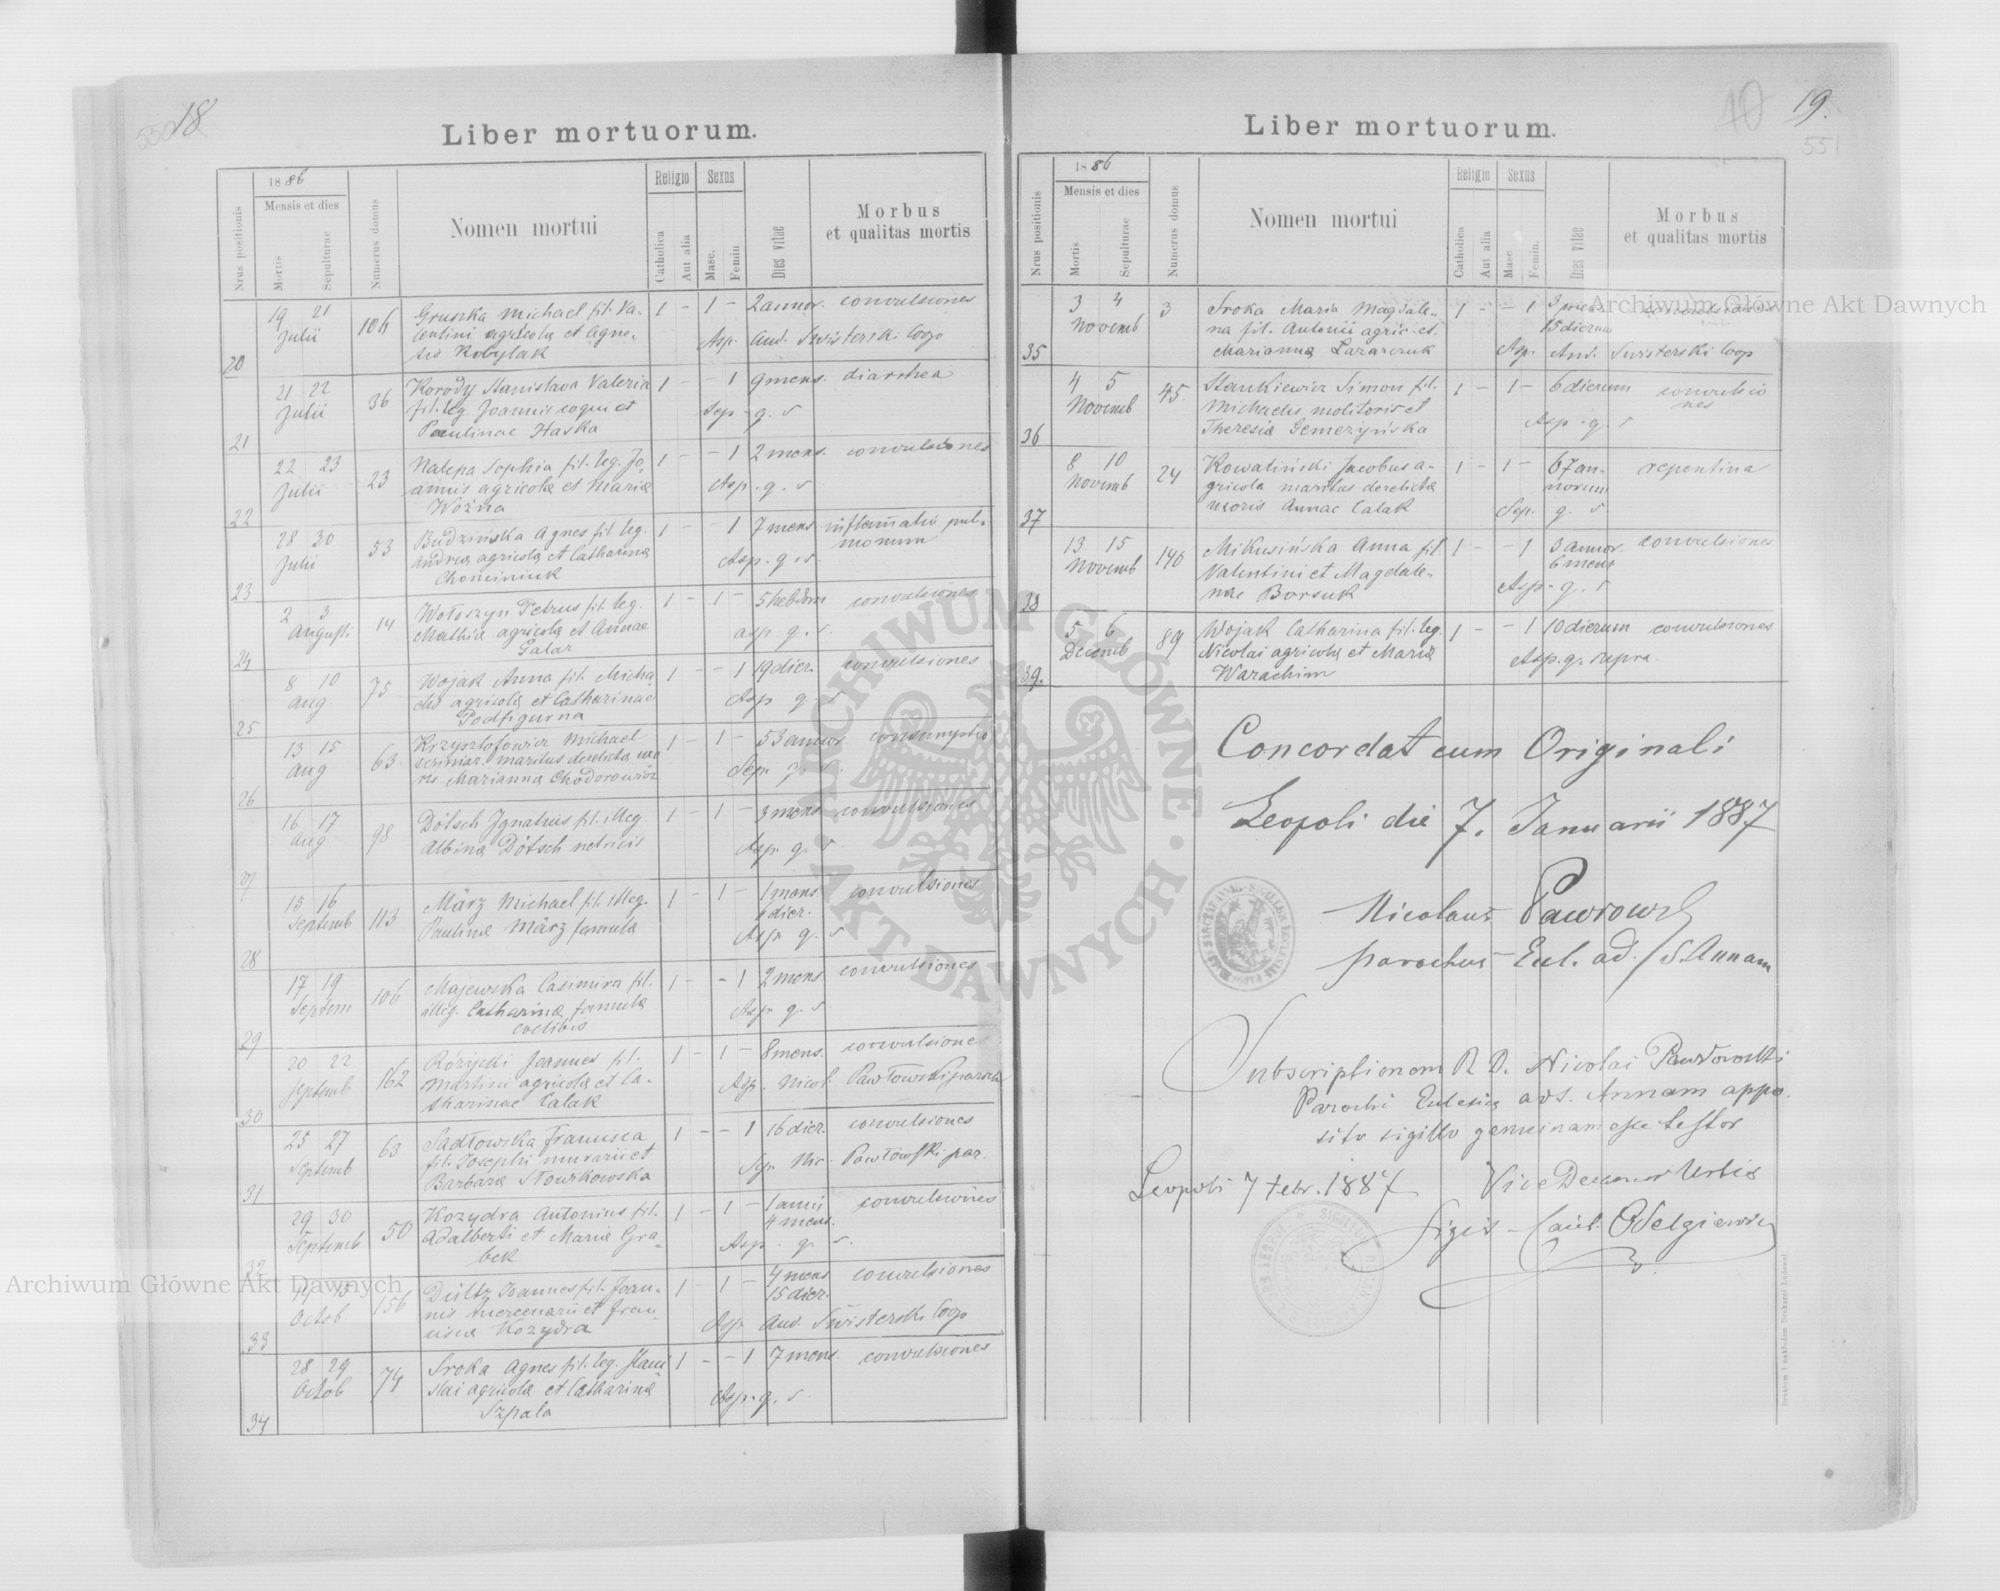 18
550
Liber mortuorum.
1886
Mensis et dies
Religio Sexus
Nrus positionis
Mortis
Sepulturae
Numerus domus
Nomen mortui
Catholica
Aut alia
Masc.
Femin
Dies vitae
Morbus
et qualitas mortis
20 19 21 Julii 106 Gruszka Michael fil. Va- 1 - 1 - 2 annor. convulsiones
lentini agricolae et Agne-
tis Kobylak Asp. And. Swisterski Coop
21 21 22 Julii 36 Korody Stanislava Valeria 1 - - 1 9 mens. diarrhea
fil. leg. Joannis coqui et
Paulinae Haska Sep. q. s
22 22 23 Julii 23 Nalepa Sophia fil. leg. Jo- 1 - - 1 2 mens. convulsiones
annis agricolae et Mariae
Woźna Asp. q. s
23 28 30 Julii 53 Budzińska Agnes fil leg. 1 - - 1 7 mens inflamatio pul-
Andreae agricolae et Catharinae monum
Chominiuk Asp. q. s.
24 2 3 Augusti 14 Wołoszyn Petrus fil. leg. 1 - 1 - 5 hebdom convulsiones
Mathiae agricolae et Annae
Galar asp q. s.
25 8 10 Aug. 75 Wojak Anna fil. Micha- 1 - - 1 19 dier. convulsiones
elis agricolae et Catharinae
Podfigurna Asp q s
26 13 15 Aug 63 Krzysztofowicz Michael 1 - 1 - 53 annor consumptio
maritus derelicta uxo-
ris Marianna Chodorowicz Sep. q. s.
27 16 17 Aug 98 Dötsch Ignatius fil. illeg. 1 - 1 - 3 mens convulsiones
Albinae Dötsch netricis Asp. q. s
28 15 16 Septemb 113 März Michael fil. illeg. 1 - 1 - 1 mens convulsiones
Paulinae März famulae 6 dier.
Asp. q. s
29 17 19 Septem 106 Majewska Casimira fil. 1 - - 1 2 mens. convulsiones
illeg. Catharinae famulae
coelibis Asp q. s.
30 20 22 Septemb 162 Różycki Joannes fil. 1 - 1 - 8 mens. convulsiones
Martini agricolae et Ca-
tharinae Calak Asp. Nicol. Pawłowski paroch
31 25 27 Septemb 63 Sadłowska Francisca 1 - - 1 16 dier. convulsiones
fil. Josephi murarii et
Barbarae Stowikowska Sep. Nic. Pawłowski par.
32 29 30 Septemb 50 Kozydra Antonius fil. 1 - 1 - 1 anni convulsiones
Adalberti et Mariae Gra- 4 mens.
bek Asp. q. s.
33 Octob. 156 Joannes fil. Joan- 1 - 1 - 4 mens convulsiones
nis mercenarii et Fran- 15 dier.
ciscae Kozydra Asp And. Swisterski Coop
34 28 29 Octob 74 Sroka Agnes fil. leg. Stani- 1 - - 1 7 mens. convulsiones
slai agricolae et Catharinae
Szpala Asp. q. s.
10 19.
551
Liber mortuorum.
1886
Mensis et dies
Religio Sexus
Nrus positionis
Mortis
Sepulturae
Numerus domus
Nomen mortui
Catholica
Aut alia
Masc.
Femin.
Dies vitae
Morbus
et qualitas mortis
35 3 4 Novemb 3 Sroka Maria Magdale- 1 - - 1 3 mens convulsiones
na fil. Antonii agric. et 15 dierum
Marianna Lazarczuk Asp. And. Swisterski Coop
36 4 5 Novemb 45. Stankiewicz Simon fil. 1 - 1 - 6 dierum convulsio
Michaelis molitoris et nes
Theresiae Gemerzyńska Asp. q. s
37 8 10 Novemb 24 Kowaliński Jacobus a- 1 - 1 - 67 an- repentina
gricola maritus derelicta norum
uxoris Annae Calak Sep. q. s
38 13 15 Novemb 146 Mikusińska Anna fil 1 - - 1 3 annor. convulsiones
Valentini et Magdale- 6 mens
nae Borsuk Asp. q. s
39. 5 6 Decemb 89 Wojak Catharina fil. leg. 1 - - 1 10 dierum convulsiones
Nicolai agricolae et Mariae
Warachim Asp. q. supra.
Concordat cum Originali
Leopoli die 7. Januarii 1887
Nicolaus Pawłowski
parochus Eccl. ad. S. Annam
Subscriptionem R. D. Nicolai Pawłowski
Parochi Eclesiae ad S. Annam appo-
sito sigillo genuinam esse testor
Leopoli 7 Febr. 1887 Vice Decanus Urbis
Archiwum Główne Akt Dawnych
Archiwum Główne Akt Dawnych
ARCHIWUM GŁÓWNE AKT DAWNYCH